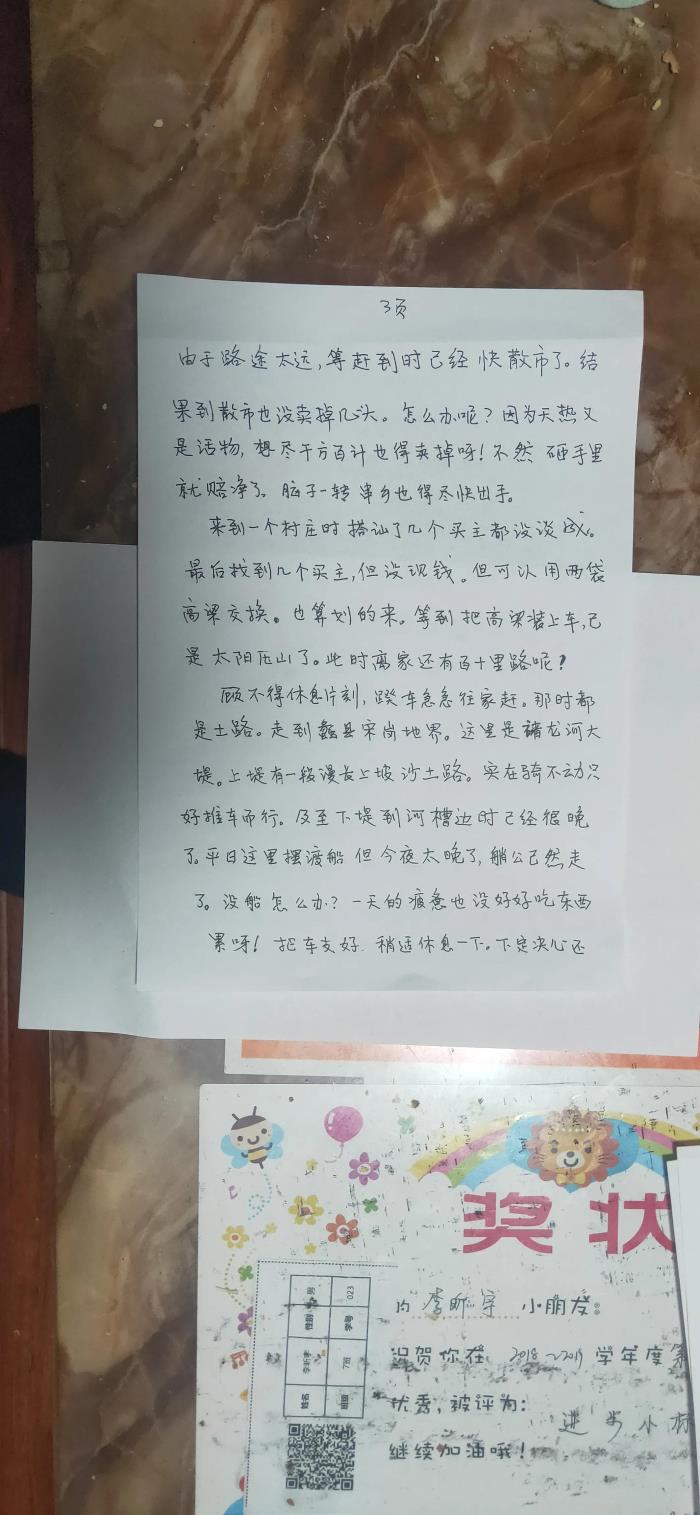 3页
由于路途太远,等赶到时已经快散市了。结
果到散市也没卖掉几头。怎么办呢?因为天热又
是活物,想尽千方百计也得卖掉呀!不然砸手里
就赔净了。脑子一转串乡也得尽快出手。
来到一个村庄时搭讪了几个买主都没谈成。
最后找到几个买主,但没现钱。但可以用两袋
高梁交换。也算划的来。等到把高梁装上车,已
是太阳压山了。此时离家还有百十里路呢?
顾不得休息片刻,蹬车急急往家赶。那时都
是土路。走到蠡县宋岗地界。这里是潴龙河大
堤。上堤有一段漫长上坡沙土路。实在骑不动只
好推车而行。及至下堤到河槽边时已经很晚
了。平日这里摆渡船但今夜太晚了,艄公已然走
了。没船怎么办?一天的疲惫也没好好吃东西
累呀!把车支好.稍适休息一下。下定决心还
奖状
李昕宇 小朋友:
祝贺你在 2018~2019 学年度第
优秀,被评为:
进步小标
继续加油哦!
别 023
性别 学号
李昕宇 7班
姓名 班级